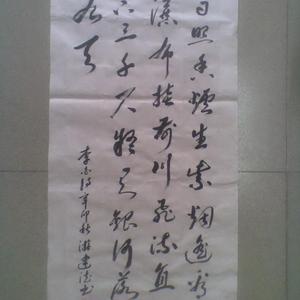 日照香爐生紫烟遥看
瀑布挂前川飞流直
下三千尺疑是银河落
九天
李白诗辛卯秋游建德书